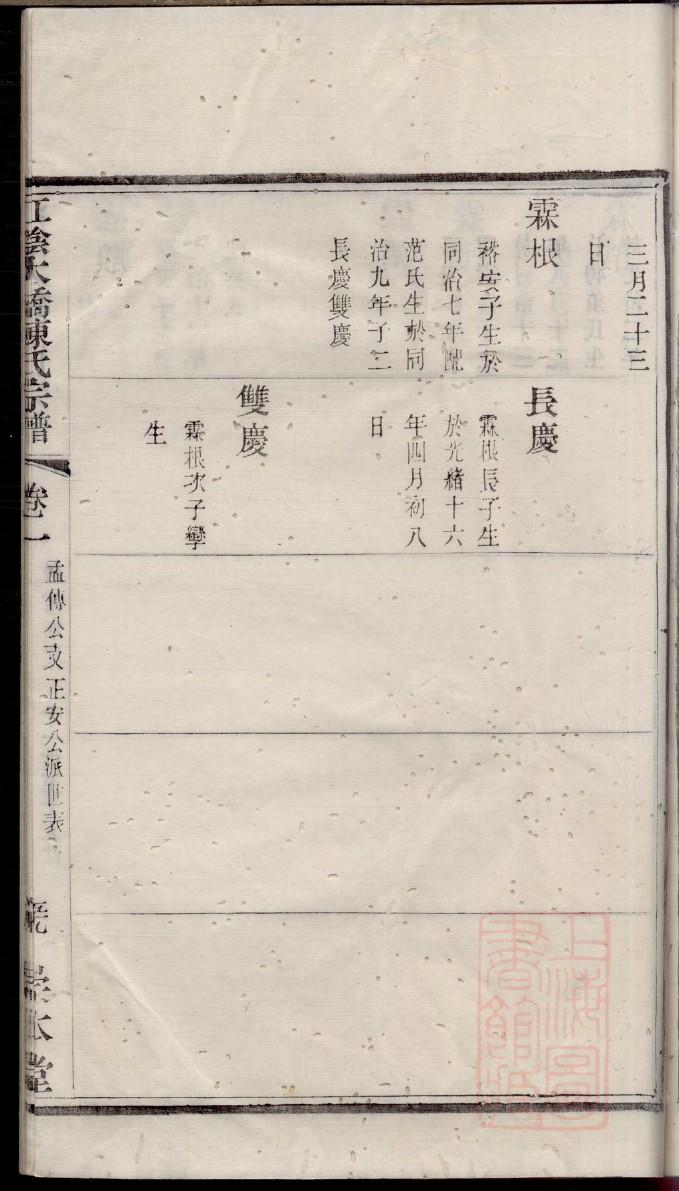 三月二十三
日
霖根
裕安子生於
同治七年配
范氏生於同
治九年子二
長慶雙慶
長慶
霖根長子生
於光緒十六
年四月初八
日
雙慶
霖根次子孿
生
江陰大橋陳氏宗譜
卷一
孟傳公支正安公派世表
崇本堂
上海圖
書館藏